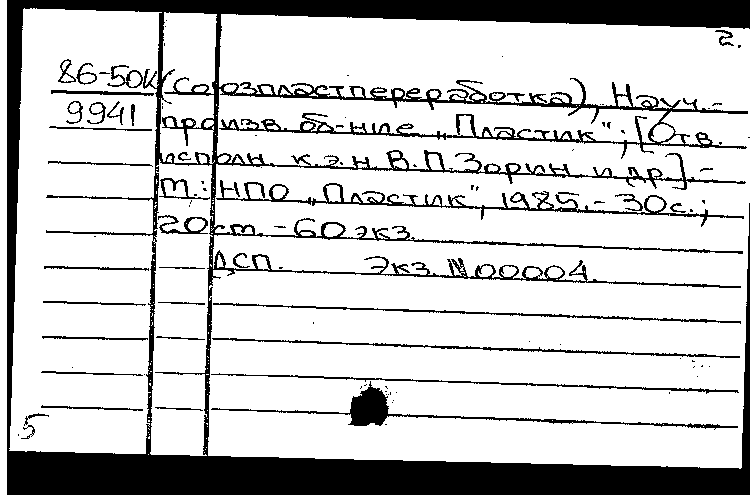 2.
86-50К (Союзпластпереработка), Науч.-
9941 произв. об-ние „Пластик"; [Отв.
исполн. к.э.н. В.П.Зорин и др.].-
М.: НПО „Пластик", 1985.- 30с.;
20см.-60экз.
ДСП. Экз. №00004.
5